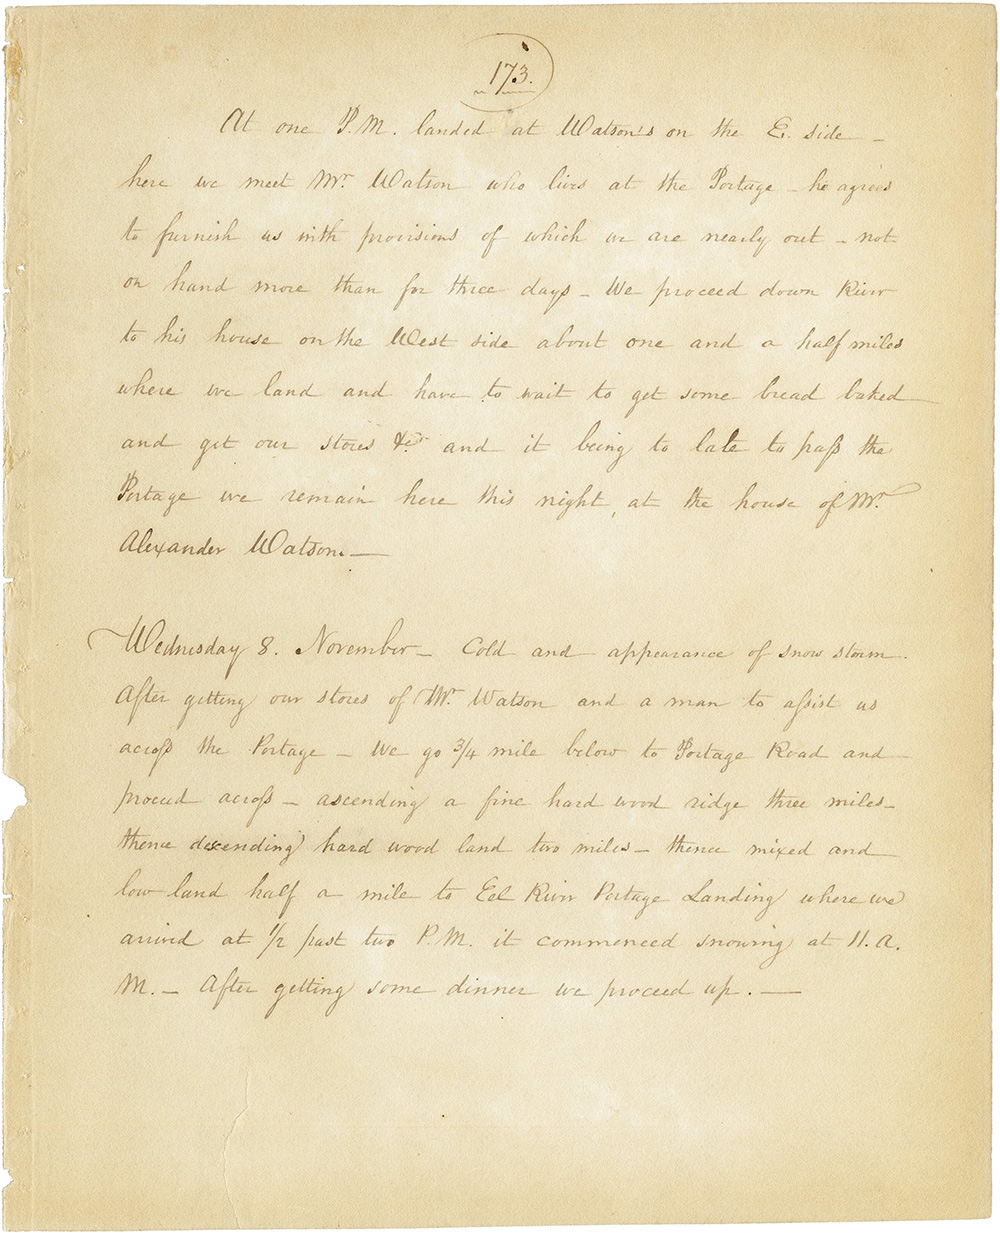 173.
At one P.M. landed at Watson's on the E. side —
here we meet Mr. Watson who lives at the Portage — he agrees
to furnish us with provisions of which we are nearly out — not
on hand more than for three days — We proceed down River
to his house on the West side about one and a half miles
where we land and have to wait to get some bread baked
and get our stores &c. and it being to late to paſs the
Portage we remain here this night, at the house of Mr.
Alexander Watson. —
Wednesday 8. November — Cold and appearance of snow storm.
After getting our stores of Mr. Watson and a man to aſsist us
acroſs the Portage — We go 3/4 mile below to Portage Road and
proceed acroſs — ascending a fine hard wood ridge three miles —
thence descending hard wood land two miles — thence mixed and
low land half a mile to Eel River Portage Landing where we
arrived at 1/2 past two P.M. it commenced snowing at 11. A.
M. — After getting some dinner we proceed up. —